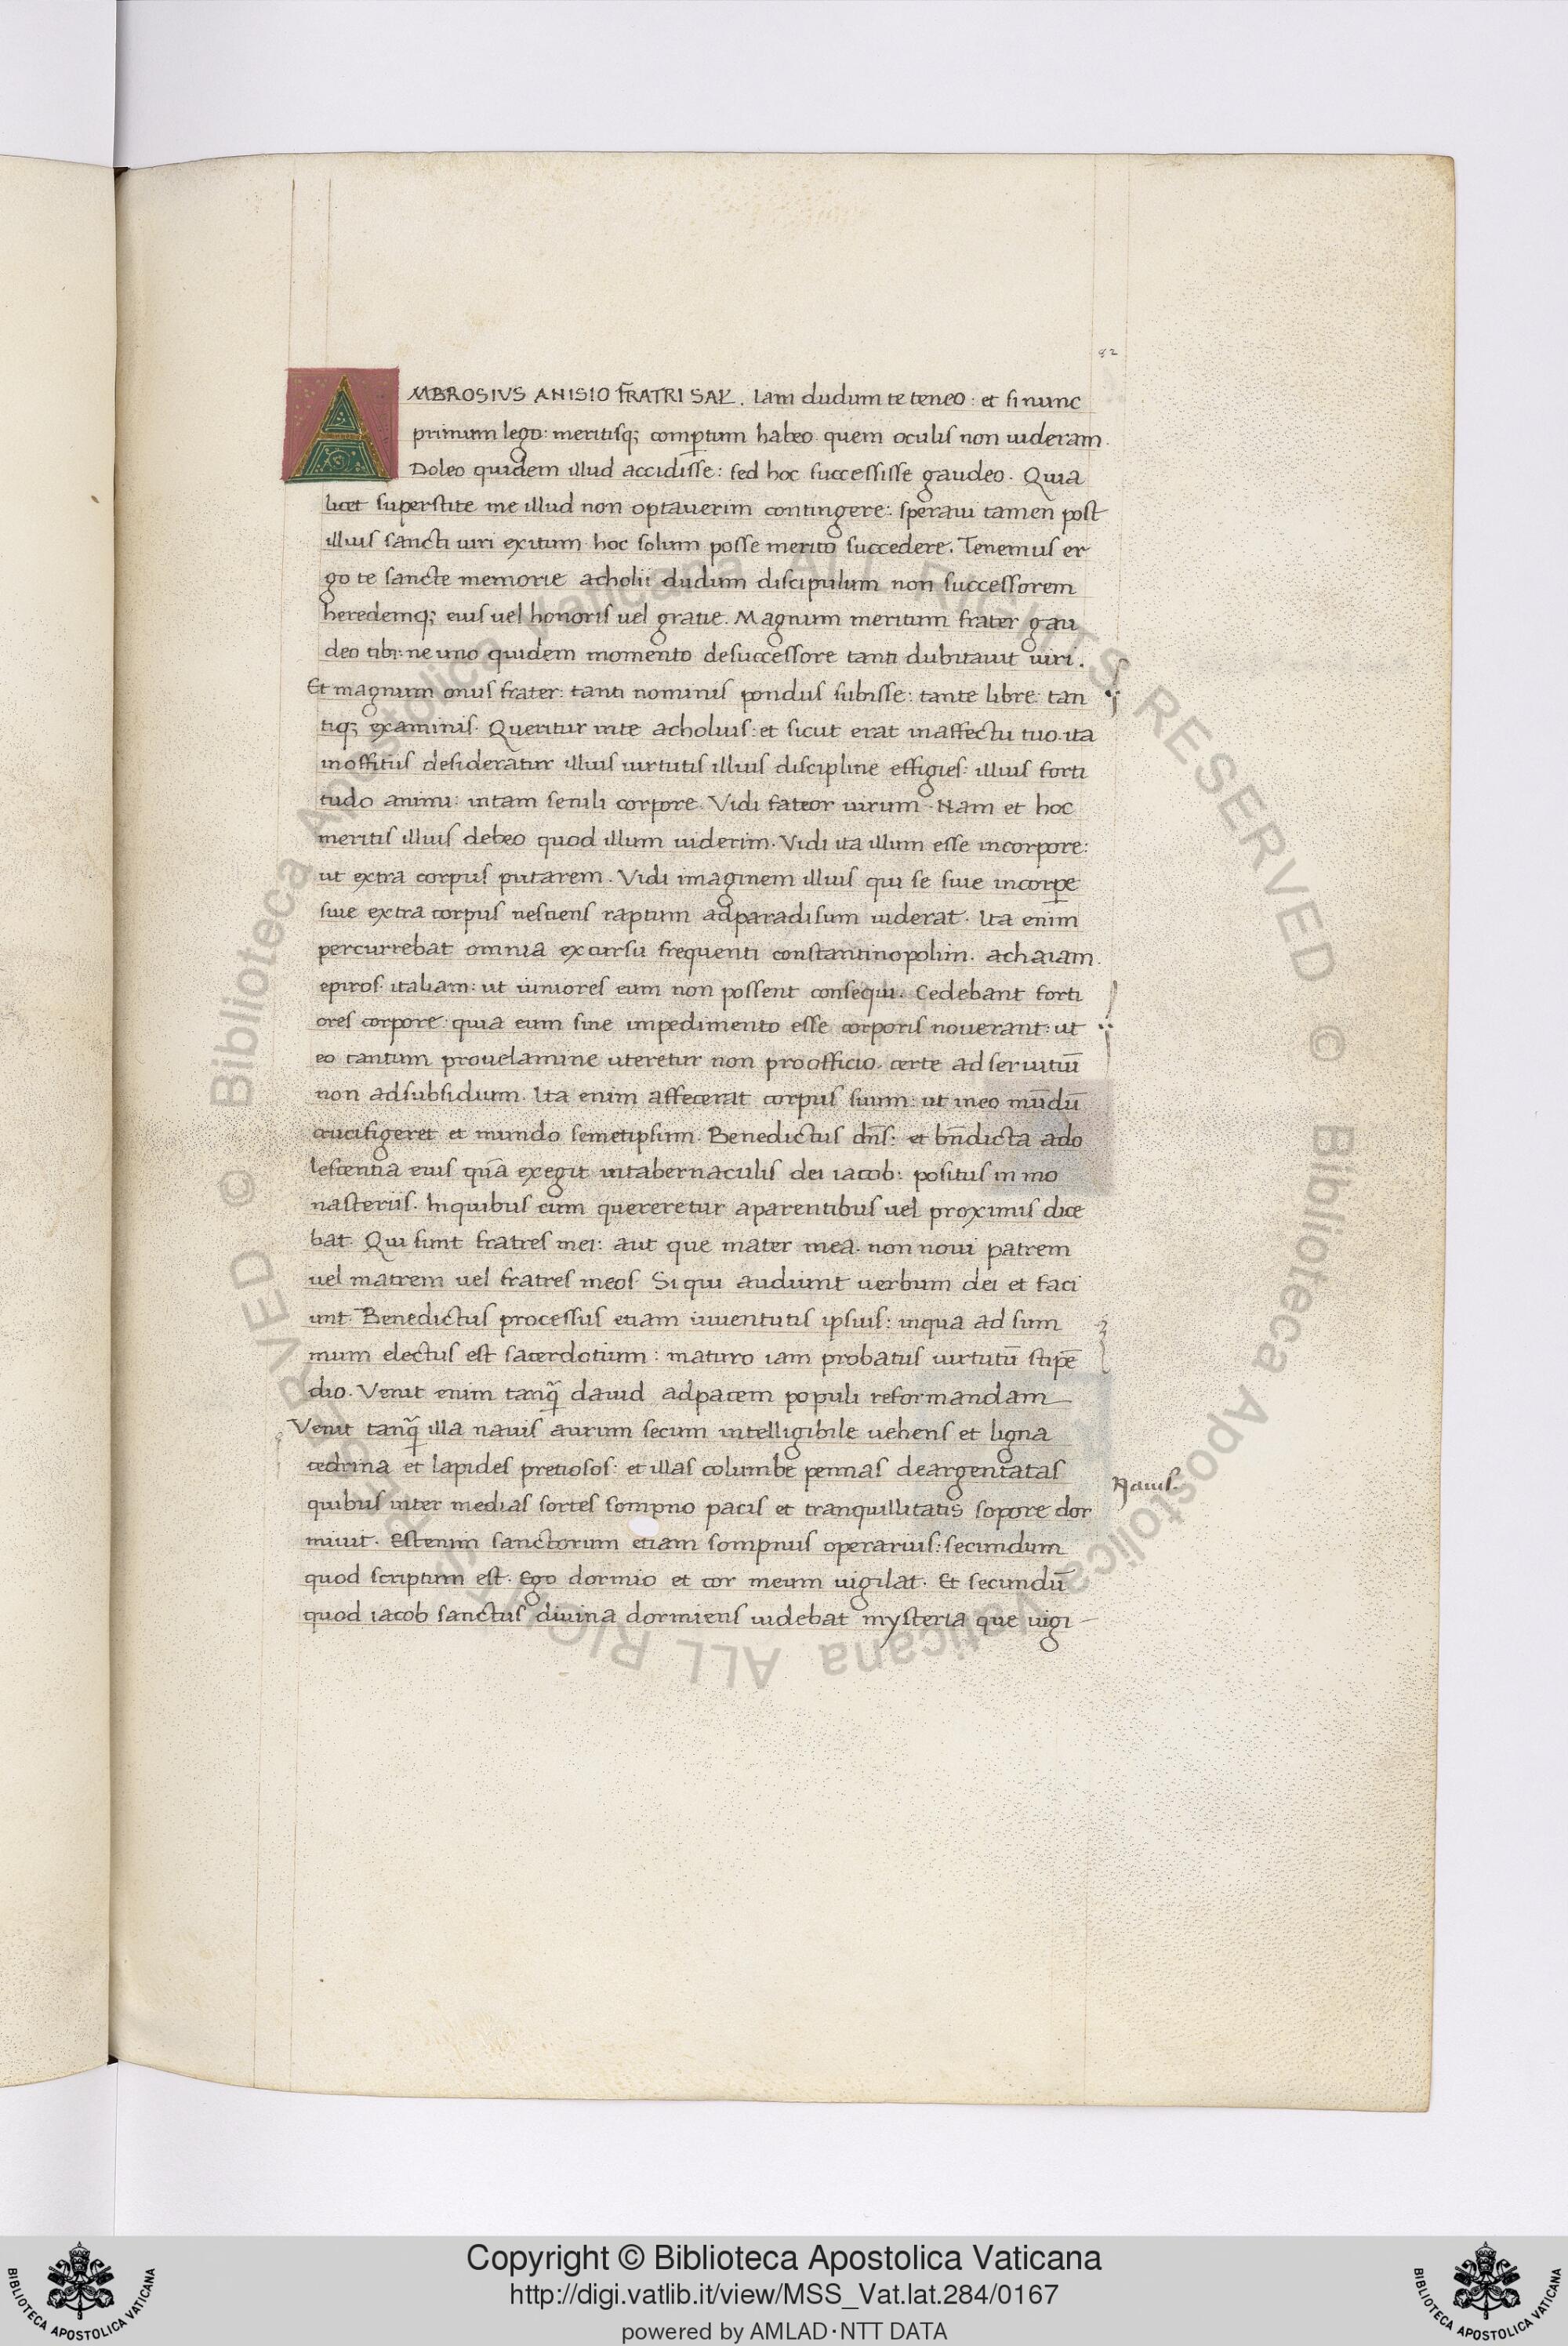 82
AMBROSIVS ANISIO FR̄ATRI SAL̄. Iam dudum te teneo: et si nunc
primum lego: meritisq; comp̱tum habeo. quem oculis non uideram.
Doleo quidem illud accidisse: sed hoc successisse gaudeo. Quia
licet superstite me illud non optauerim contingere: speraui tamen post
illius sancti uiri exitum hoc solum posse merito succedere. Tenemus er
go te sancte memorie acholii dudum discipulum non successorem
heredemq; eius uel honoris uel gratie. Magnum meritum frater gau
deo tibi: ne uno quidem momento desuccessore tanti dubitauit uiri.
Et magnum onus frater: tanti nominis pondus subisse: tante libre: tan
tiq; examinis. Queritur inte acholius: et sicut erat inaffectu tuo. ita
inoffitiis desideratur illius uirtutis illius discipline effigies: illius forti
tudo animi: intam senili corpore. Vidi fateor uirum. Nam et hoc
meritis illius debeo quod illum uiderim. Vidi ita illum esse incorpore:
ut extra corpus putarem. Vidi imaginem illius qui se siue incorpe
siue extra corpus nesciens raptum adparadisum uiderat. Ita enim
percurrebat omnia excursu frequenti constantinopolim. achaiam.
epiros. italiam: ut iuniores eum non possent consequi. Cedebant forti
ores corpore: quia eum sine impedimento esse corporis nouerant: ut
eo tantum prouelamine uteretur non proofficio. certe ad seruitiū
non adsubsidium. Ita enim affecerat corpus suum: ut ineo mūdū
crucifigeret et mundo semetipsum. Benedictus dn̄s: et bn̄dicta ado
lescentia eius quā exegit intabernaculis dei iacob: positus in mo
nasteriis. Inquibus cum quereretur aparentibus uel proximis dice
bat. Qui sunt fratres mei: aut que mater mea. non noui patrem
uel matrem uel fratres meos. Si qui audiunt uerbum dei et faci
unt. Benedictus processus etiam iuuentutis ipsius: inqua ad sum
mum electus est sacerdotium: maturo iam probatus uirtutū stipē
dio. Venit enim tanq̄ dauid adpacem populi reformandam
Venit tanq̄ illa nauis aurum secum intelligibile uehens et ligna
cedrina et lapides pretiosos: et illas columbe pennas deargentatas
Nauis.
quibus inter medias sortes sompno pacis et tranquillitatis sopore dor
miuit. Estenim sanctorum etiam sompnus operarius: secundum
quod scriptum est. Ego dormio et cor meum uigilat. Et secundū
quod iacob sanctus diuina dormiens uidebat mysteria que uigi
© Biblioteca Apostolica Vaticana ALL RIGHTS RESERVED
© Biblioteca Apostolica Vaticana ALL RIGHTS RESERVED
Copyright © Biblioteca Apostolica Vaticana
http://digi.vatlib.it/view/MSS_Vat.lat.284/0167
powered by AMLAD·NTT DATA
BIBLIOTECA APOSTOLICA VATICANA
BIBLIOTECA APOSTOLICA VATICANA